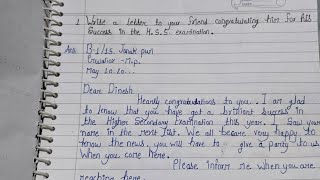 1. Write a letter to your friend congratulating him for his
success in the H.S.S. examination.
Ans. B-1/15. Janak puri
Gwalior - M.p.
May 10.20...
Dear Dinesh
Hearty congratulations to you. I am glad
to know that you have got a brilliant success in
the Higher Secondary Examination this year. I saw your
name in the merit list. We all became very happy to
know the news, you will have to give a party to us
When you come here.
Please inform me when you are
reaching here.